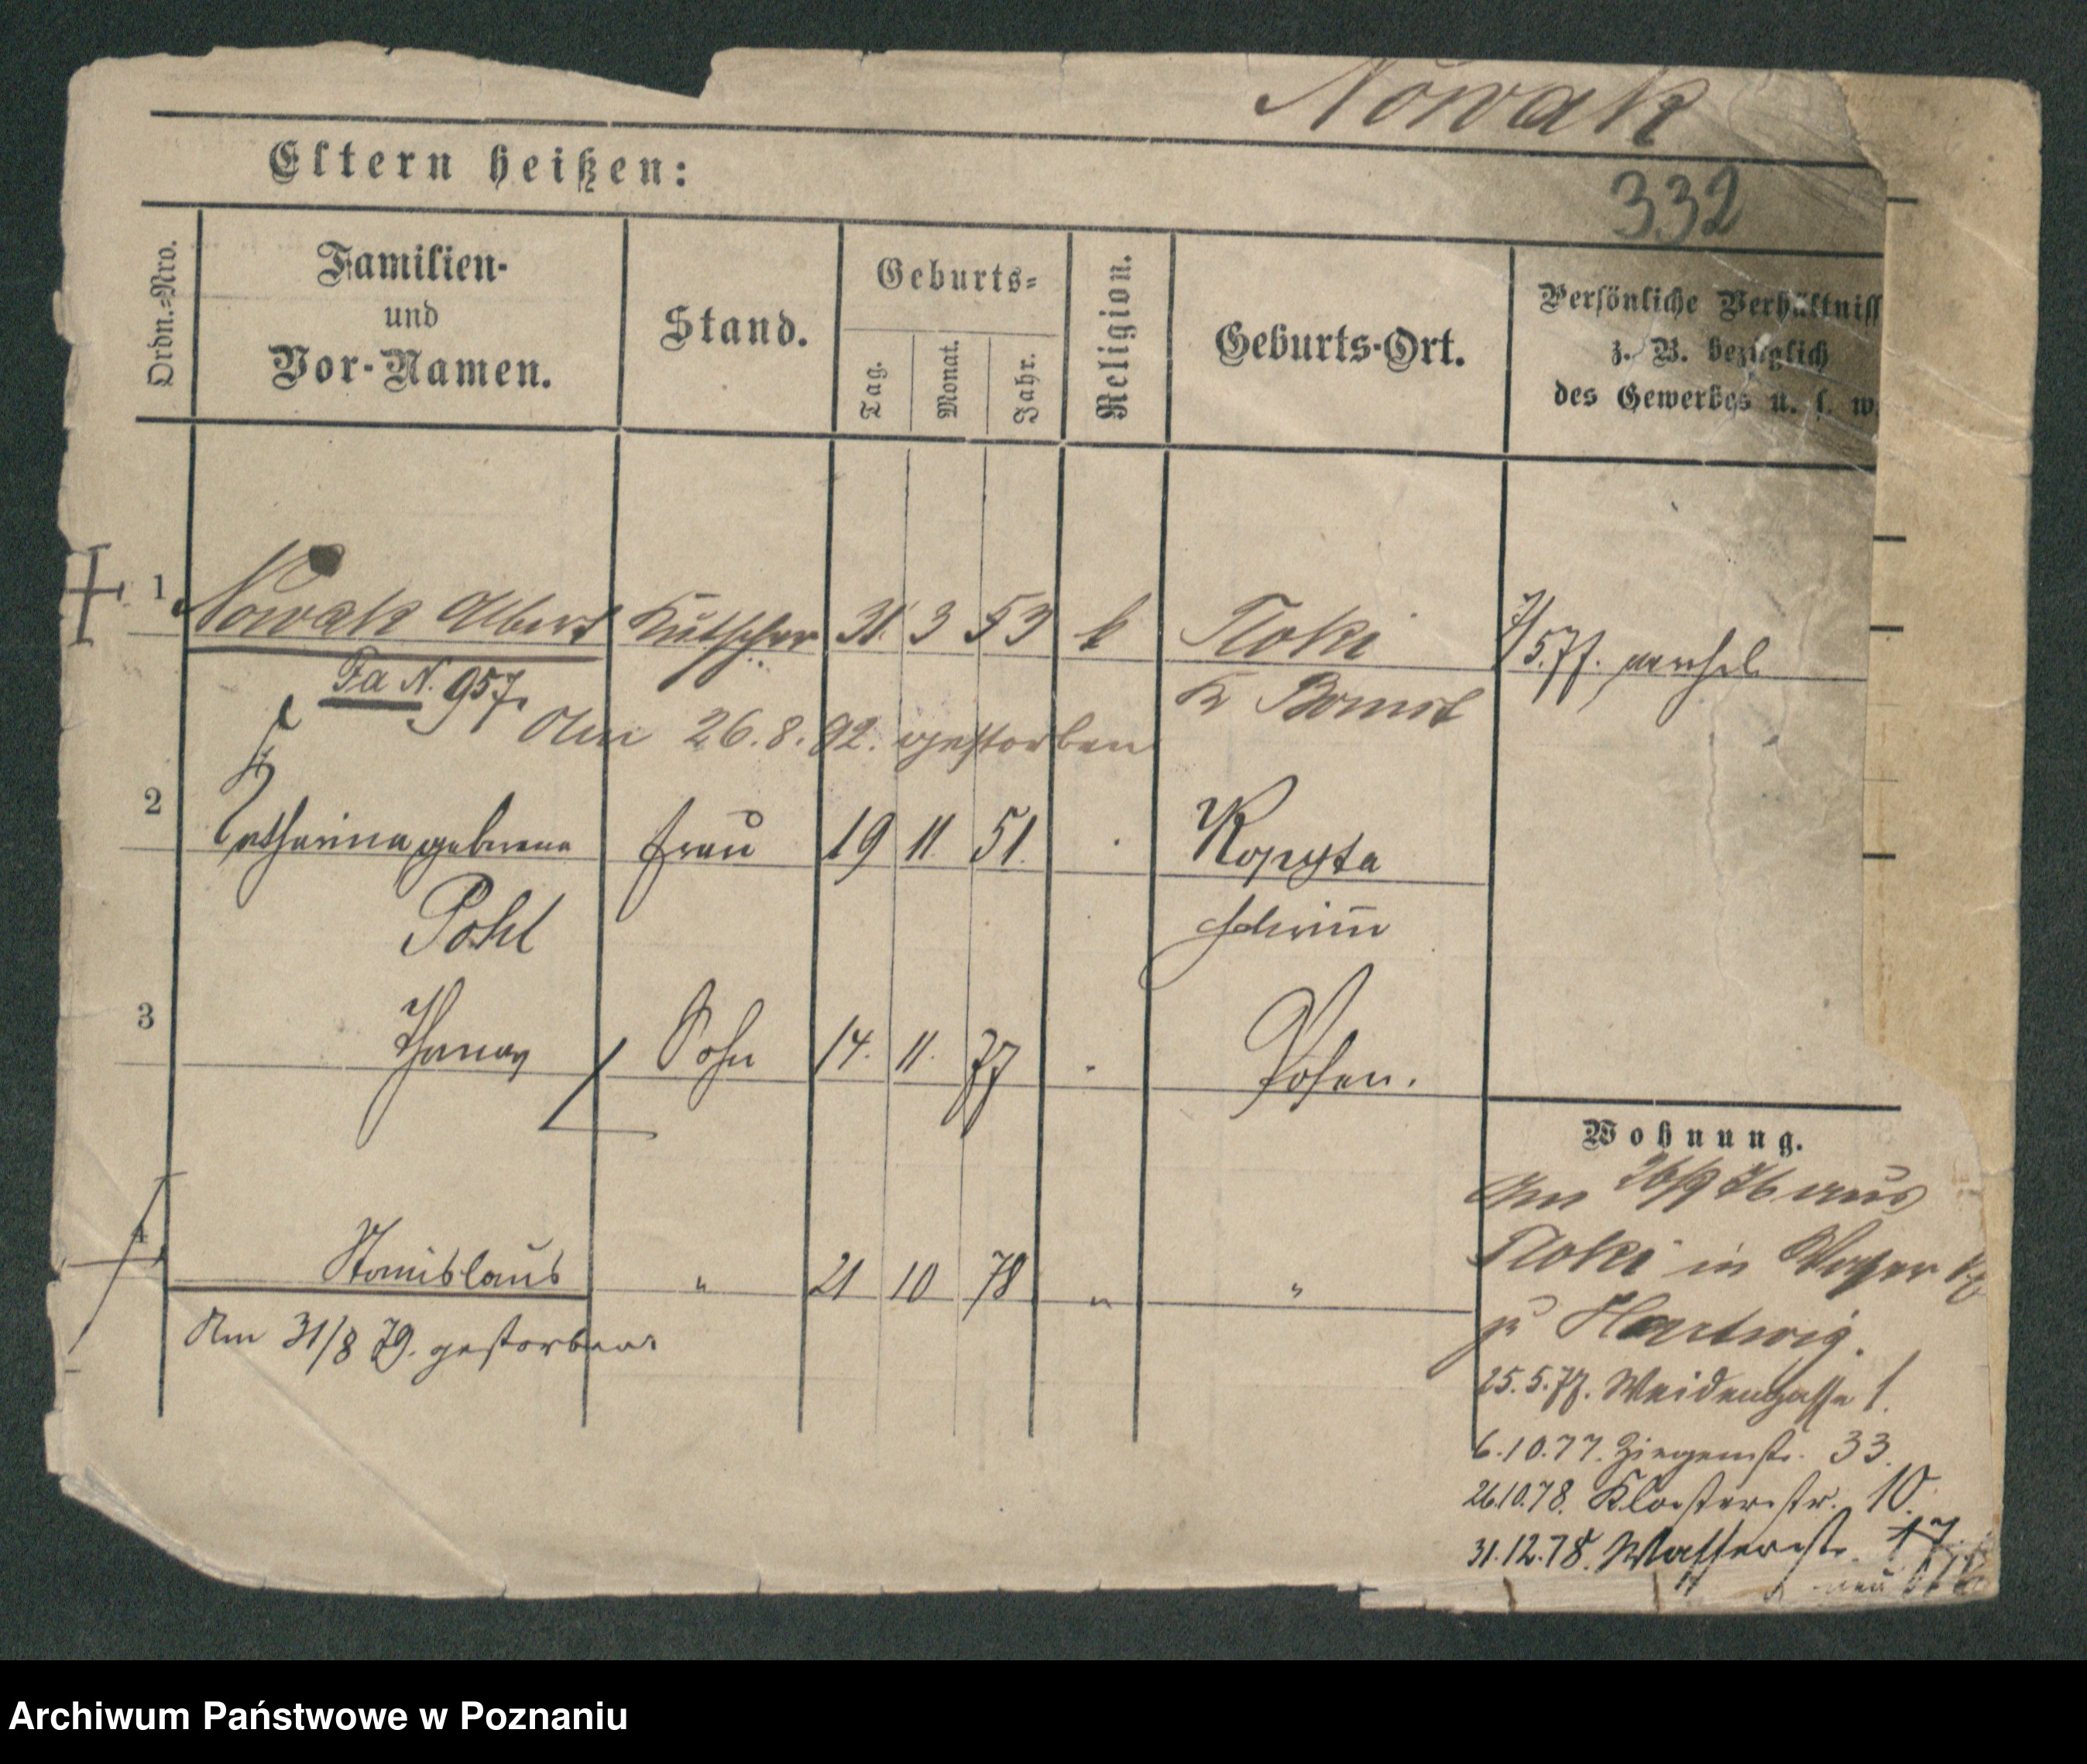 Nowak
Eltern heißen:
332
Ordn.-Nro.
Familien-
und
Vor-Namen.
Stand.
Geburts-
Tag.
Monat.
Jahr.
Religion.
Geburts-Ort.
Persönliche Verhältniss
z. B. bezüglich
des Gewerbes u. s. w.
1 Nowak Albert Kutscher 31. 3 53 k Tloki
Fa N. 957. K Bomst
Am 26.8.92. gestorben
2 Catharina geborene Frau 19 11. 51. Kopyta
Pohl Schrim̄
3 Thomas Sohn 14. 11. 77 Posen.
4 Stanislaus " 21 10 78 " "
Am 31/8 79. gestorben.
Wohnung.
Am 26/9 76 aus
Tloki in
zu Hartwig.
25.5.77. Weidengasse 1.
6.10.77. Ziegenstr. 33.
26.10.78. Klosterstr. 10.
31.12.78. Wasserstr. 17.
neu
Archiwum Państwowe w Poznaniu